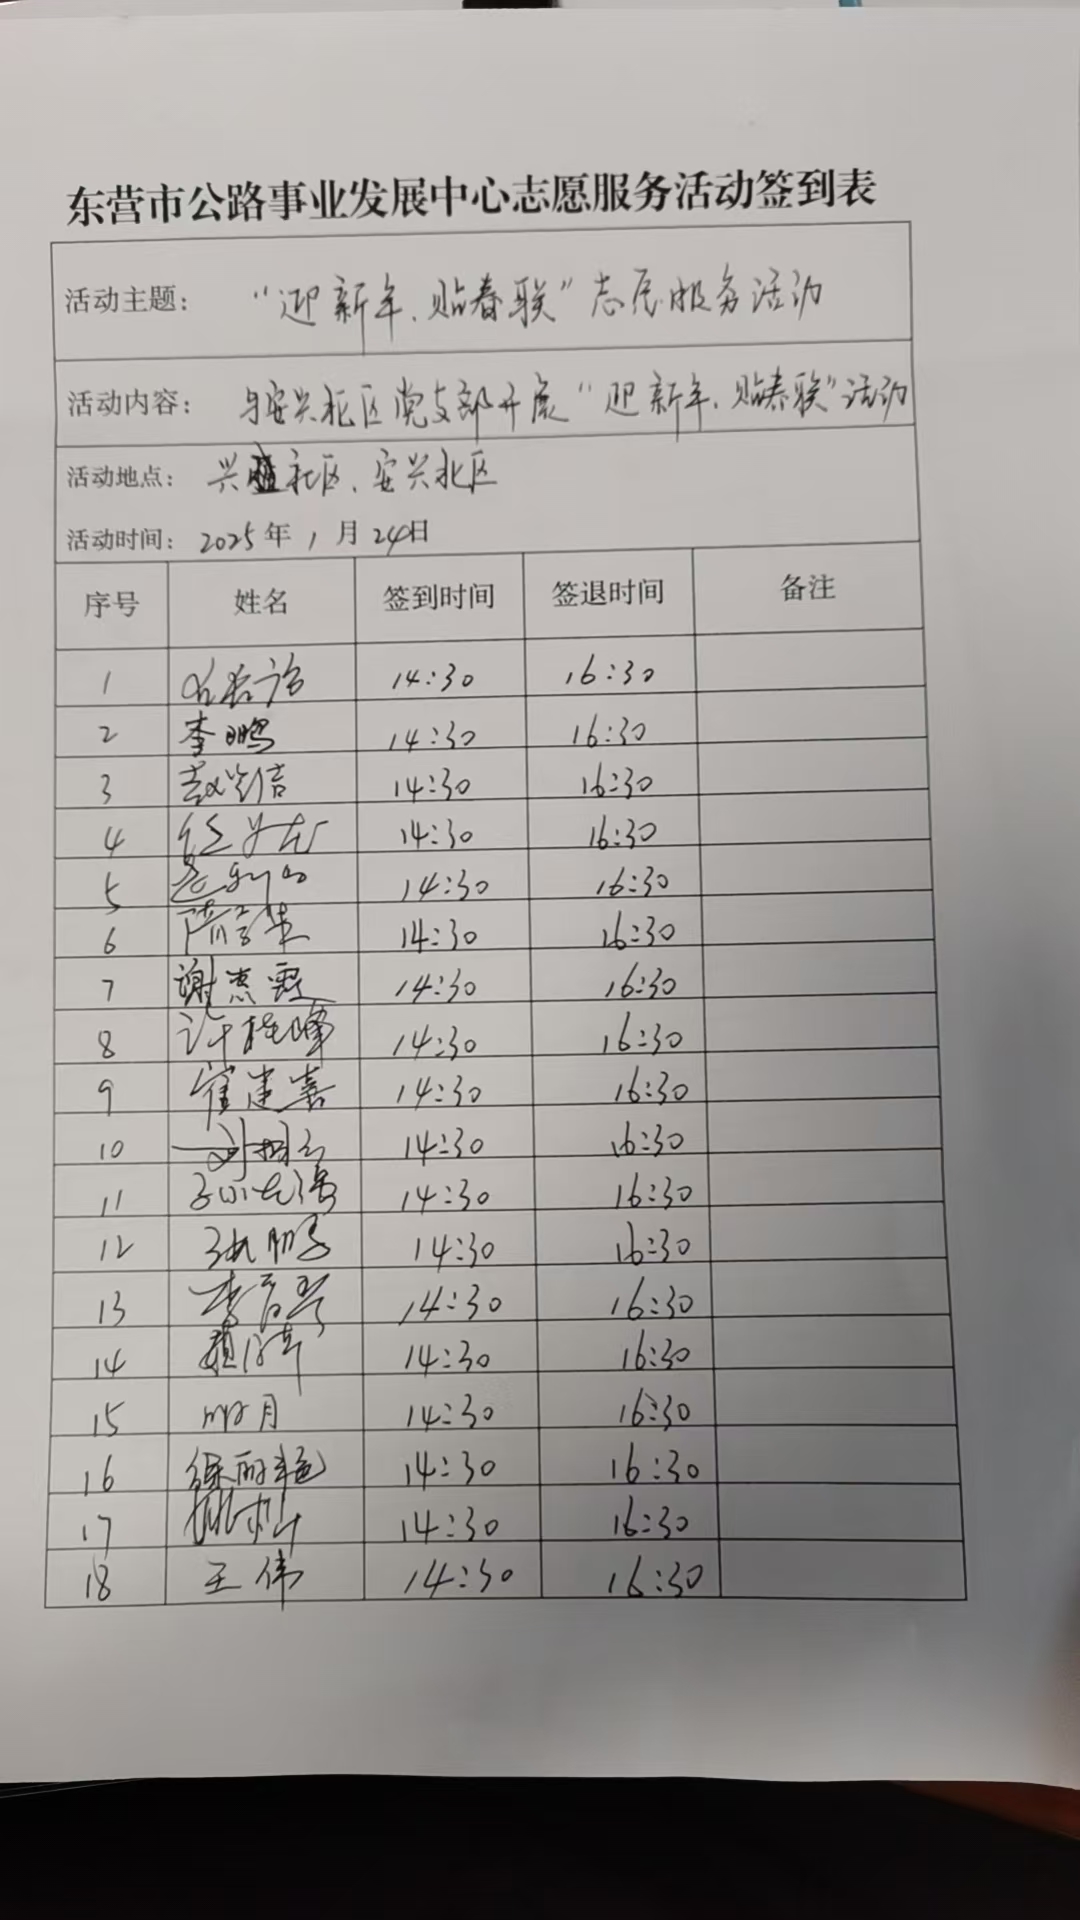 东营市公路事业发展中心志愿服务活动签到表
活动主题： “迎新年、贴春联”志愿服务活动
活动内容： 与安兴北区党支部开展“迎新年、贴春联”活动
活动地点： 兴 社区、安兴北区
活动时间： 2025年1月24日
序号 姓名 签到时间 签退时间 备注
1 14:30 16:30
2 李鹏 14:30 16:30
3 14:30 16:30
4 14:30 16:30
5 14:30 16:30
6 14:30 16:30
7 谢杰霞 14:30 16:30
8 许桂峰 14:30 16:30
9 崔建嘉 14:30 16:30
10 14:30 16:30
11 14:30 16:30
12 张鹏 14:30 16:30
13 14:30 16:30
14 14:30 16:30
15 14:30 16:30
16 徐丽艳 14:30 16:30
17 14:30 16:30
18 王伟 14:30 16:30